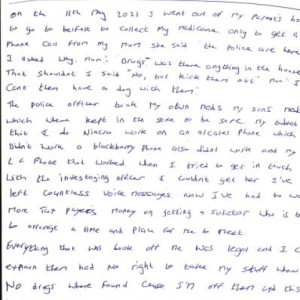 on the 11th May 2021 I went out of my Parents ho
to go to belfast to collect my medicane only to get a
Phone Call from my Mum she said 'the Police are here
I asked why, Mum' 'Drugs' was there anything in the house
That shouldnt I said 'No, but kick them out' Mum I
Cant then have a day with them'
The police officer took My own meds my sons meds
which where kept in the safe to be
this & do work on an alcatel Phone which
Didn't work a blackberry Phone also didnt work and my
LG Phone that worked when I tried to get in touch
with the investigating officer I couldnt get her I've
left countless voice messages now I've had to
More Tax payers money on getting a Solicitor who is to
to arrange a time and place for me to meet.
Everything that was took off me was legal and I c
explain them had No right to take my stuff when
No drugs where found Cause I'm off them and this